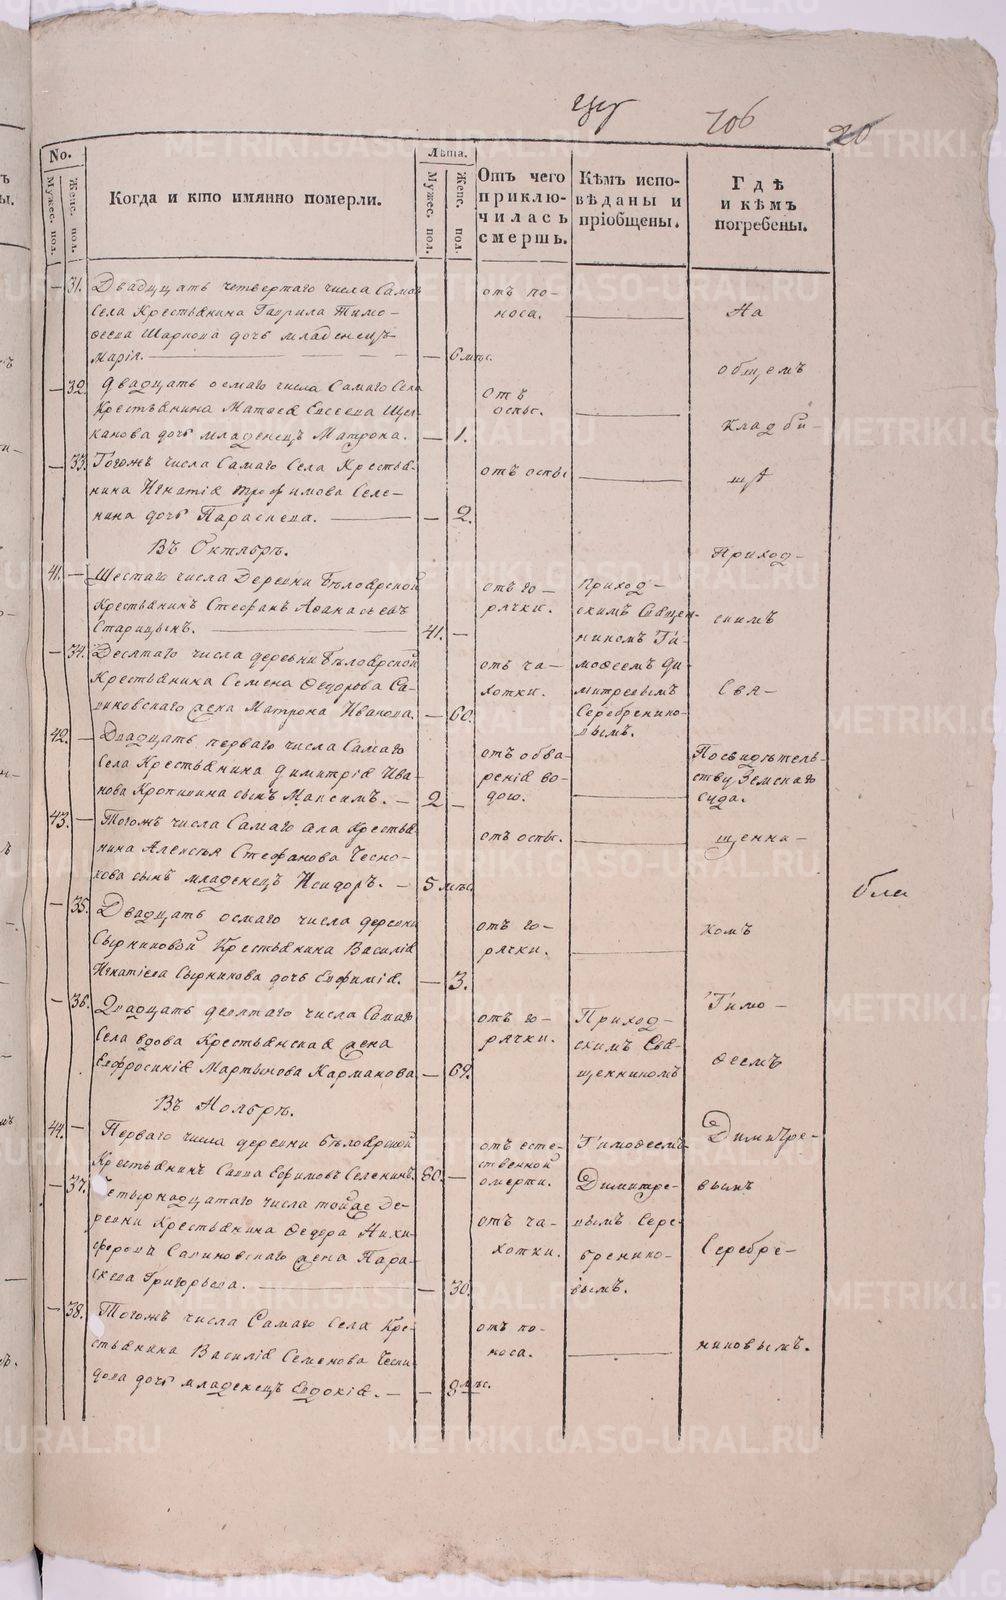 706
20
No.
Мужес. пол.
Женс. пол.
Когда и кто имянно померли.
Лѣта.
Мужес. пол.
Женс. пол.
Отъ чего приключилась смерть.
Кѣмъ исповѣданы и пріобщены.
Гдѣ и кѣмъ погребены.
— 31. Двадцать четвертаго числа Самаго
Села Крестьянина Гаврила Тимо-
феева Шарпова дочь младенецъ
Марія. — 6 мѣс.
отъ по-
носа.
— 32. Двадцать осмаго числа Самаго Села
Крестьянина Матвея Евсеева Щел-
канова дочь младенецъ Матрона. — 1.
отъ
оспы.
— 33. Тогожъ числа Самаго Села Крестья-
нина Игнатія Трофимова Селе-
нина дочь Параскева. — 2.
отъ оспы
Въ Октябрѣ.
41. — Шестаго числа Деревни Бѣлоярской
Крестьянинъ Стефанъ Афанасьевъ
Старицынъ. 41. —
отъ го-
рячки.
Приход-
скимъ Священ-
никомъ Ти-
мофеемъ Ди-
митревымъ
Серебренико-
вымъ.
— 34. Десятаго числа деревни Бѣлоярской
Крестьянина Семена Федорова Са-
пиковскаго жена Матрона Иванова. — 60.
отъ ча-
хотки.
42. — Двадцать перваго числа Самаго
Села Крестьянина Димитрія Ива-
нова Кропинина сынъ Максимъ. — 2 —
отъ обва-
ренія во-
дою.
Посвидѣтель-
ству Земскаго
Суда.
43. — Тогожъ числа Самаго Села Крестья-
нина Алексѣя Стефанова Чесно-
хова сынъ младенецъ Исидоръ. — 5 мѣс.
отъ оспы.
— 35. Двадцать осмаго числа деревни
Сырниковой Крестьянина Василія
Игнатіева Сырникова дочь Евфимія. — 3.
отъ го-
рячки.
— 36. Двадцать девятаго числа Самаго
Села вдова Крестьянская жена
Евфросинія Мартынова Карманова. — 69.
отъ го-
рячки.
Приход-
скимъ Свя-
щенникомъ
Въ Ноябрѣ.
44. — Перваго числа деревни Бѣлоярской
Крестьянинъ Савва Ефимовъ Селенинъ. 80. —
отъ есте-
ственной
смерти.
Тимофеемъ
Димитре-
вымъ Сере-
бренико-
вымъ.
— 37. Четырнадцатаго числа тойже Де-
ревни Крестьянина Федора Ники-
ферова Сапиковскаго жена Пара-
скева Григорьева. — 30.
отъ ча-
хотки.
— 38. Тогожъ числа Самаго Села Кре-
стьянина Василія Семенова
дочь младенецъ Евдокія. — 8 мѣс.
отъ по-
носа.
На
общемъ
кладби-
щѣ
Приход-
скимъ
Свя-
щенни-
комъ
Тимо-
феемъ
Димитре-
вымъ
Серебре-
никовымъ.
METRIKI.GASO-URAL.RU